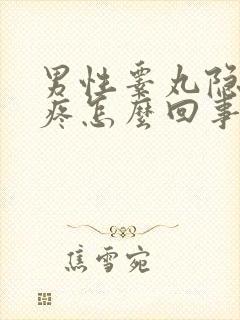 男性睾丸隐
疼怎麼回事
焦雪宛